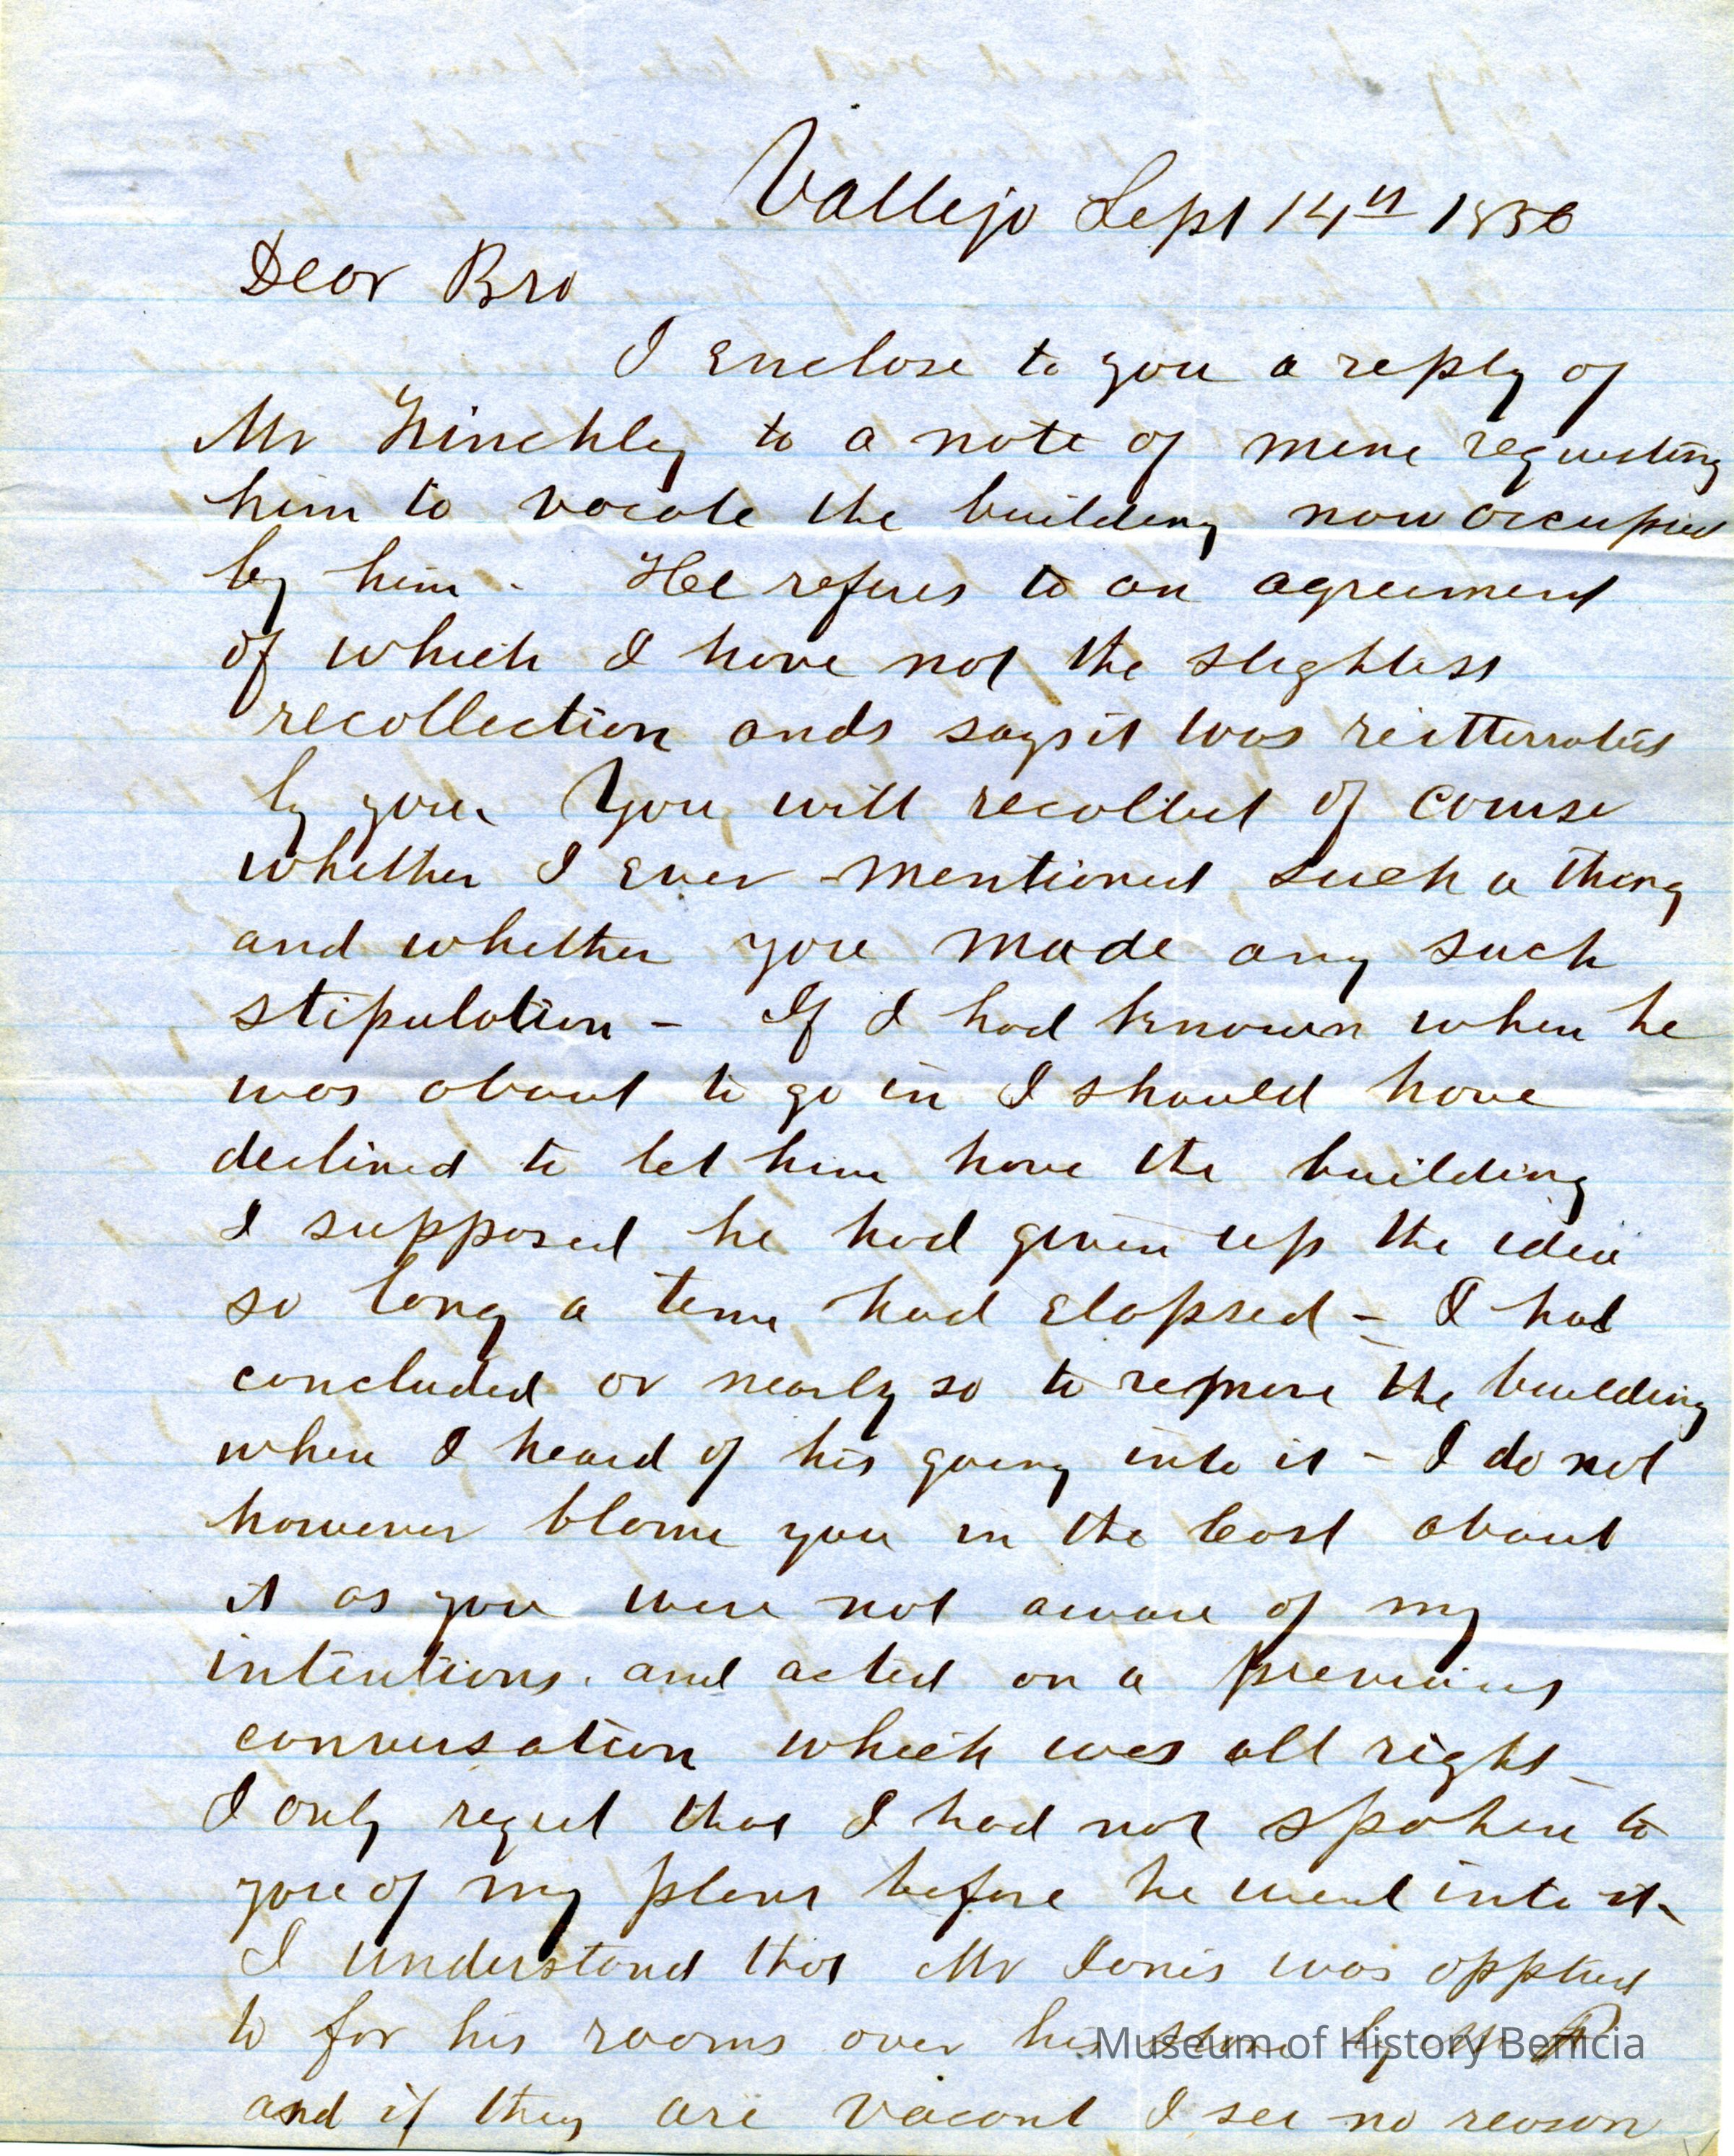 Vallejo Sept 14th 1856
Dear Bro
I enclose to you a reply of
Mr to a note of mine requesting
him to vacate the building now occupied
by him - He refers to an agreement
of which I have not the slightest
recollection and says it was reitterrated
by you. You will recollect of course
whether I ever mentioned such a thing
and whether you made any such
stipulation - If I had known when he
was about to go in I should have
declined to let him have the building
I supposed he had given up the idea
so long a time had elapsed - I had
concluded or nearly so to remove the building
when I heard of his going into it - I do not
however blame you in the least about
it as you were not aware of my
intentions. and acted on a previous
conversation which was all right -
I only regret that I had not spoken to
you of my plans before he went into it -
I understand that Mr was applied
to for his rooms over his store by Mr
and if they are vacant I see no reason
Museum of History Benicia